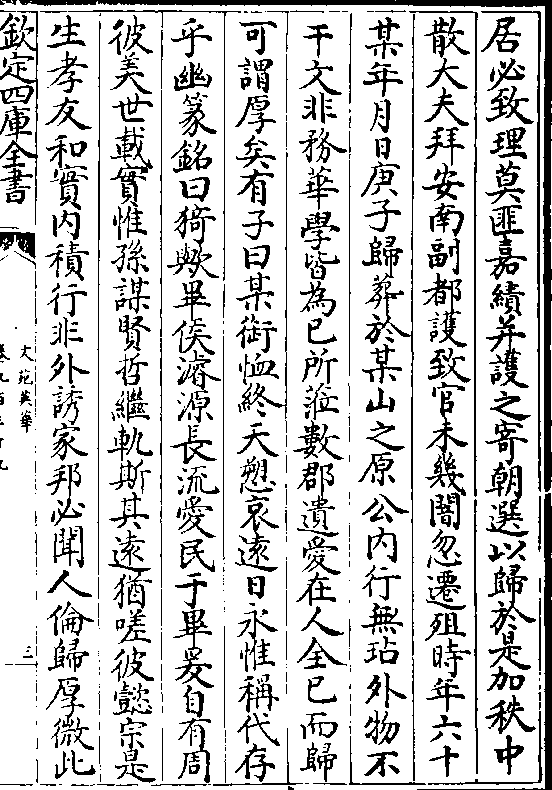 居必致理莫匪嘉績并護之寄朝選以歸於是加秩中
散大夫拜安南副都護致官未幾闇忽遷殂時年六十
某年月日庚子歸葬於某山之原公內行無玷外物不
干文非務華學皆為已所蒞數郡遺愛在人全已而歸
可謂厚矣有子曰某銜恤終天愬哀遠日永惟稱代存
乎幽篆銘曰猗歟畢侯濬源長流愛民于畢爰自有周
彼美世載實惟孫謀賢哲繼軌斯其遠猶嗟彼懿宗是
生孝友和實內積行非外誘家邦必聞人倫歸厚微此
欽定四庫全書
文苑英華
三